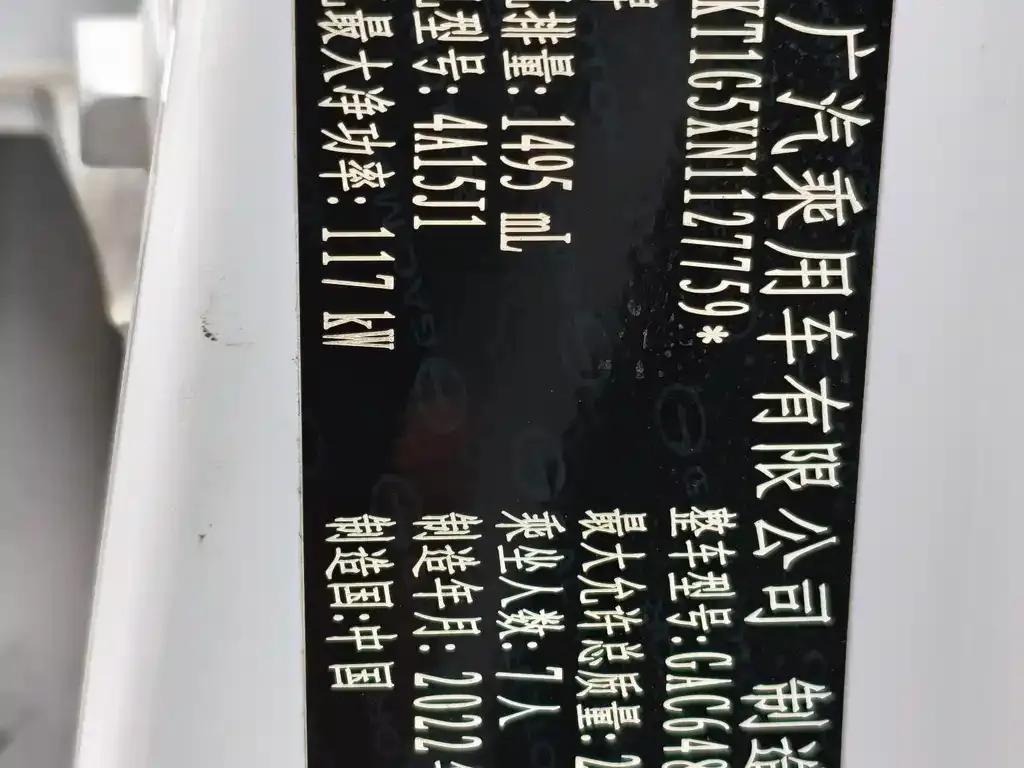 广汽乘用车有限公司 制造
KT1G5XN1127759* 整车型号:GAC648
最大允许总质量:2
排量:1495 mL 乘坐人数:7人
型号:4A15J1 制造年月:2022
最大净功率:117 kW 制造国:中国